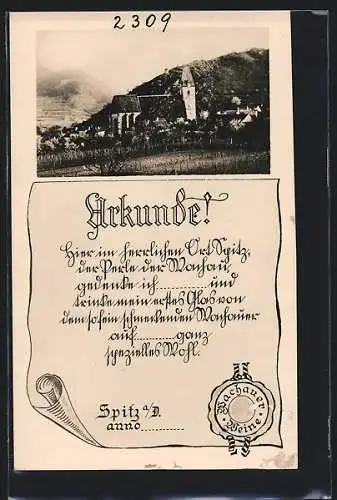 2309
Urkunde!
Hier im herrlichen Ort Spitz,
der Perle der Wachau,
gedenke ich.............und
trinke mein erstes Glas von
dem so fein schmeckenden Wachauer
auf...........ganz
spezielles Wohl.
Spitz a/D.
anno............
Wachauer
Weine